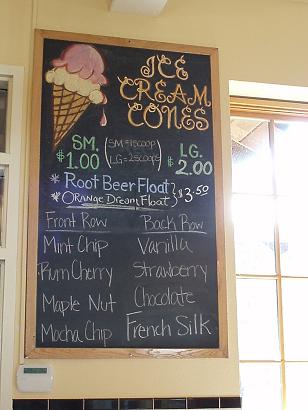 ICE
CREAM
CONES
SM. (SM = 1 SCOOP LG.
$1.00 LG = 2 SCOOPS) $2.00
* Root Beer Float } $3.50
* Orange Dream Float
Front Row Back Row
Mint Chip Vanilla
Rum Cherry Strawberry
Maple Nut Chocolate
Mocha Chip French Silk